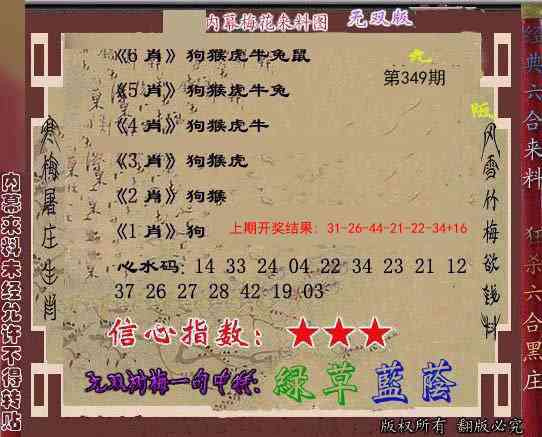 内幕梅花来料图 无双版
《6 肖》狗猴虎牛兔鼠
九
第349期
《5 肖》狗猴虎牛兔
《4 肖》狗猴虎牛
《3 肖》狗猴虎
《2 肖》狗猴
《1 肖》狗
上期开奖结果: 31-26-44-21-22-34+16
心水码: 14 33 24 04 22 34 23 21 12
37 26 27 28 42 19 03
信心指数: ★★★
绿草蓝荫
版权所有 翻版必究
寒梅屠庄生肖
风雪竹梅欲钱料
内幕来料未经允许不得转贴
经典六合来料
狂杀六合黑庄